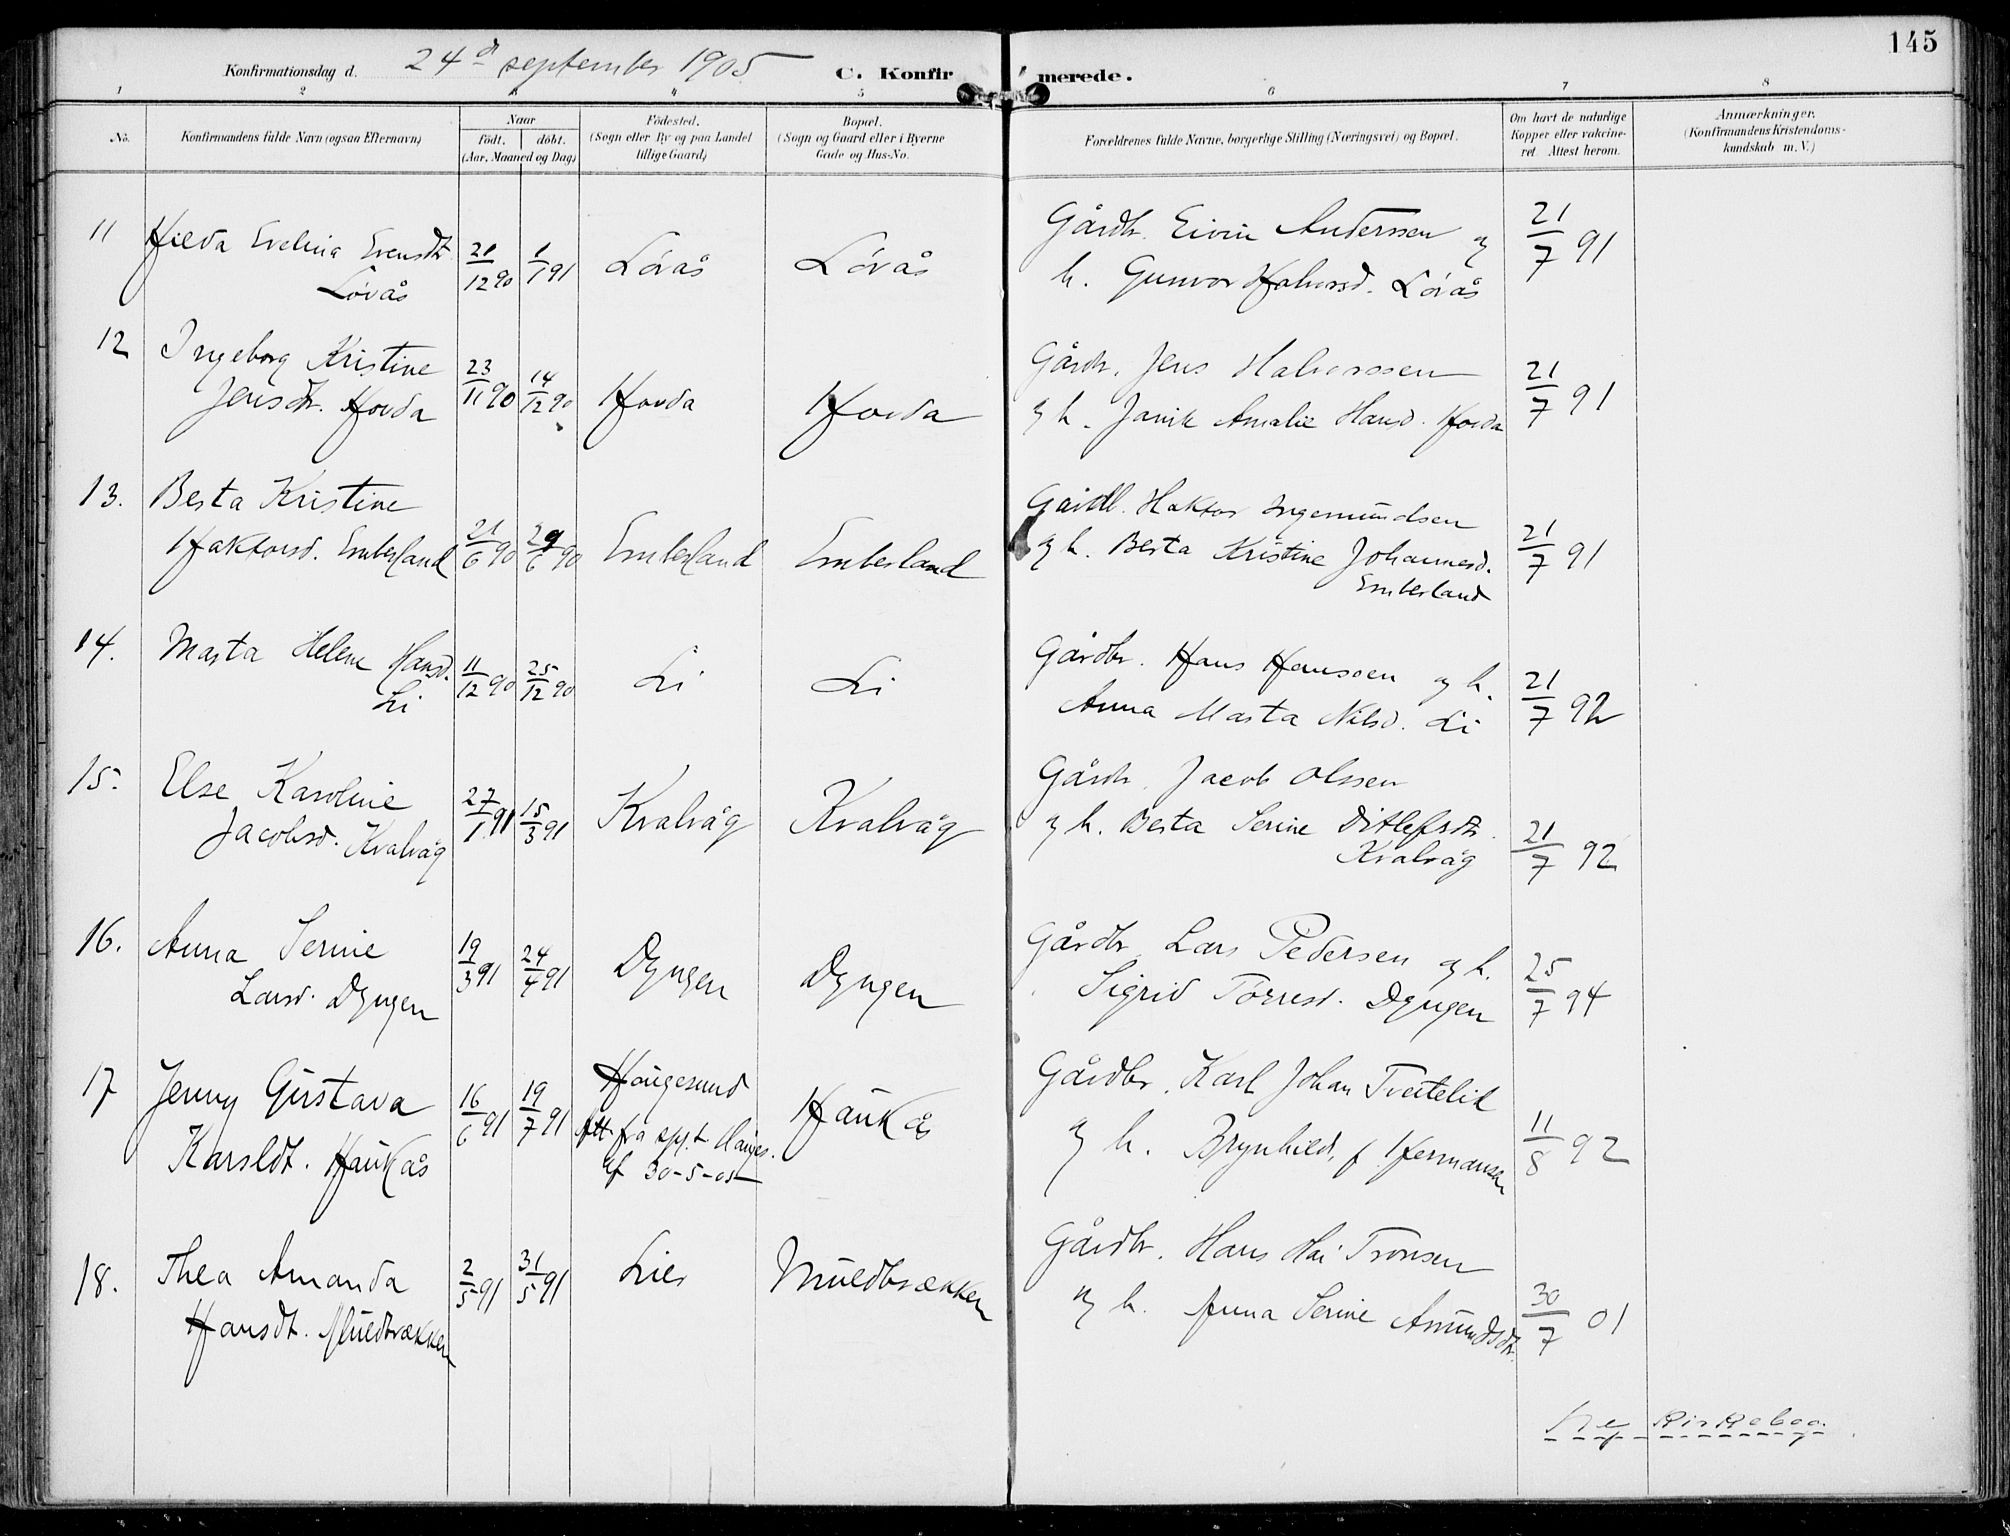 145
Konfirmationsdag d. 24de september 1905
C. Konfirmerede.
1 2 3 4 5 6 7 8
No.
Konfirmandens fulde Navn (ogsaa Efternavn)
Naar
Født. døbt.
(Aar, Maaned og Dag)
Fødested.
(Sogn eller By og paa Landet
tillige Gaard)
Bopæl.
(Sogn og Gaard eller i Byerne
Gade og Hus-No.
Forældrenes fulde Navne, borgerlige Stilling (Næringsvei) og Bopæl.
Om havt de naturlige
Kopper eller vakcine-
ret. Attest herom.
Anmærkninger.
(Konfirmandens Kristendoms-
kundskab m. V.)
11 Hilda Evelina Evensdt.
Løvås
21/12 90 1/1 91 Løvås Løvås
Gårdbr. Eivin Anderssen og
h. Gunvor Halvorsd. Løvås
21/7 91
12 Ingeborg Kristine
Jensdtr. Hovda
23/11 90 14/12 90 Hovda Hovda
Gårdbr. Jens Halvorssen
og h. Janik Amalie Hansd. Hovda
21/7 91
13. Berta Kristine
Haktorsd. Emberland
21/6 90 29/6 90 Emberland Emberland
Gårdb. Haktor Ingemundsen
og h. Berta Kristine Johannesd.
Emberland
21/7 91
14. Marta Helene Hansd.
Li
11/12 90 25/12 90 Li Li
Gårdbr. Hans Hanssen og h.
Anna Marta Nilsd. Li
21/7 92
15. Else Karoline
Jacobsd. Kvalvåg
27/1 91 15/3 91 Kvalvåg Kvalvåg
Gårdbr. Jacob Olssen
og h. Berta Serine Ditlefsdtr.
Kvalvåg
21/7 92
16. Anna Serine
Larsd. Dyngen
19/3 91 24/4 91 Dyngen Dyngen
Gårdbr. Lars Pedersen og h.
Sigrid Torresd. Dyngen
25/7 94
17 Jenny Gustava
Karsldt. Haukås
16/6 91 19/7 91
Haugesund
Att fra sp.t Hauges.
af 30-5-05
Haukås
Gårdbr. Karl Johan Tveitelid
og h. Brynhild, f. Hermansen
11/8 92
18. Thea Amanda
Hansdt. Muldbrækken
2/5 91 31/5 91 Lier Muldbrækken
Gårdbr. Hans Tronsen
og h. Anna Serine Amundsdtr.
30/7 01
Ny Kirkebog.